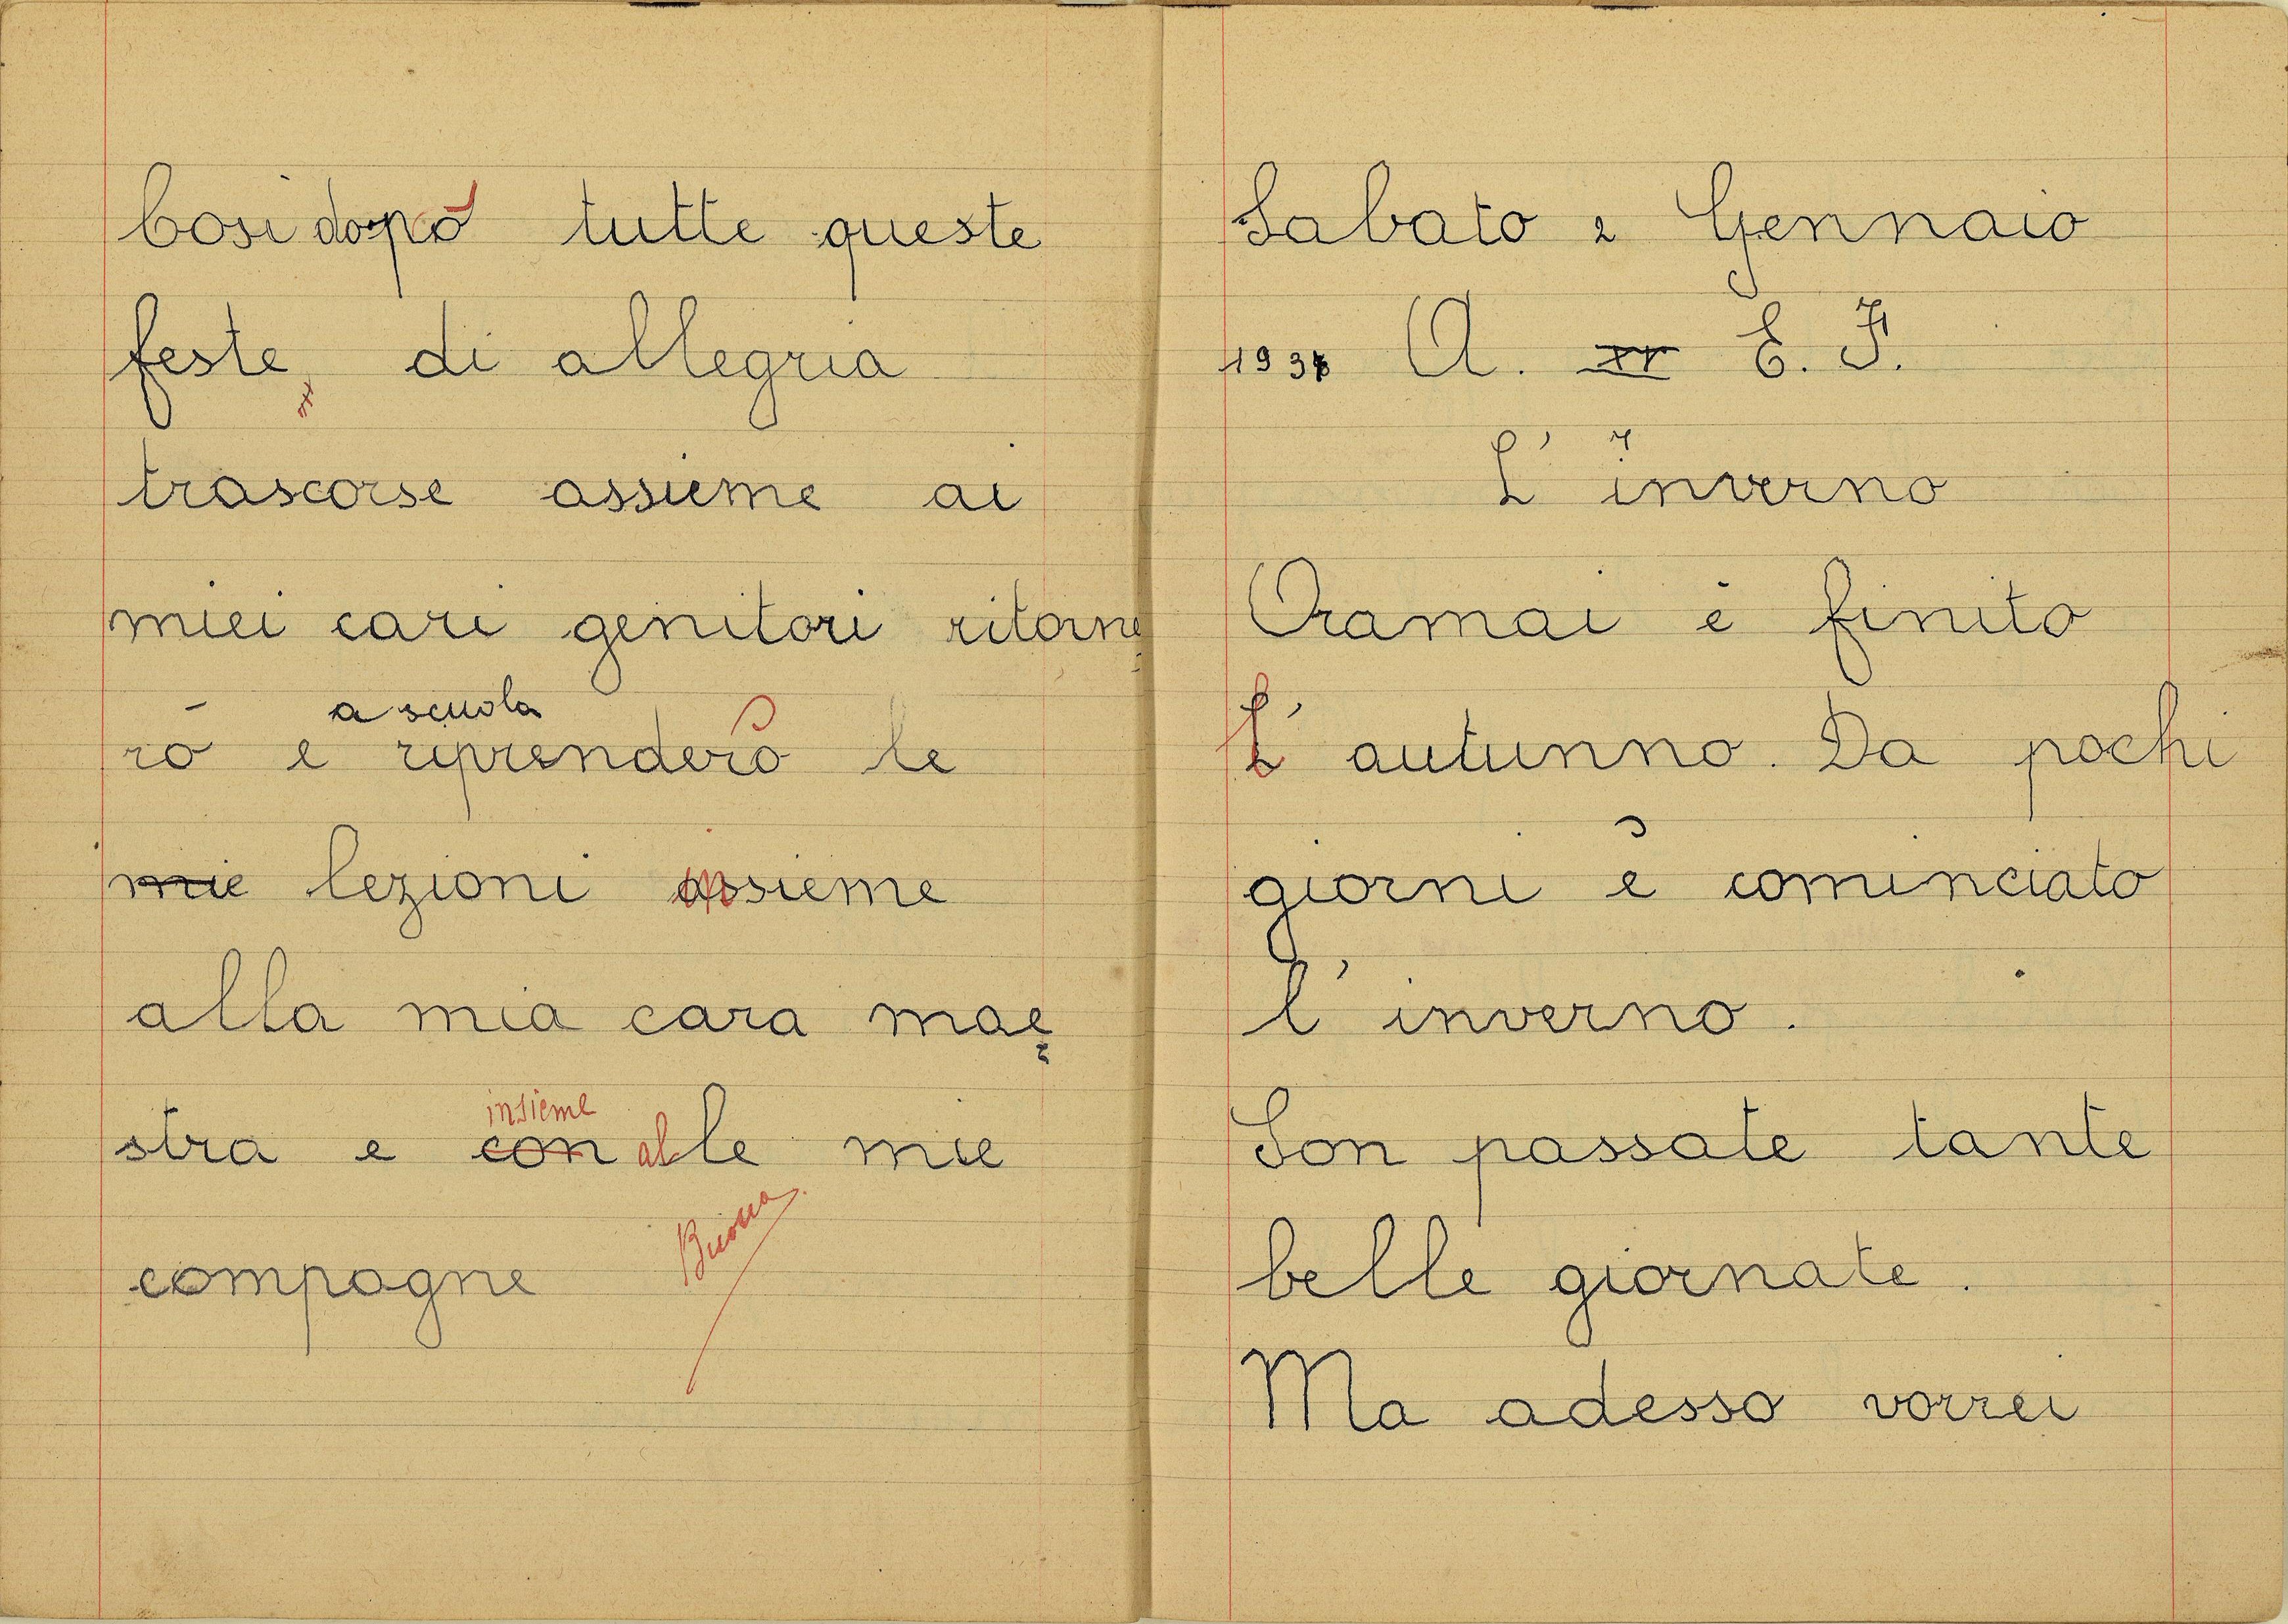 Cosi dopo tutte queste
feste, di allegria
trascorse assieme ai
miei cari genitori ritorne
a scuola
rò e riprenderò le
mie lezioni insieme
alla mia cara mae
insieme
stra e con alle mie
compagne
Buona
Sabato 2 Gennaio
A. XV E. F.
L' inverno
Oramai è finito
L' autunno. Da pochi
giorni è cominciato
l' inverno.
Son passate tante
belle giornate.
Ma adesso vorrei